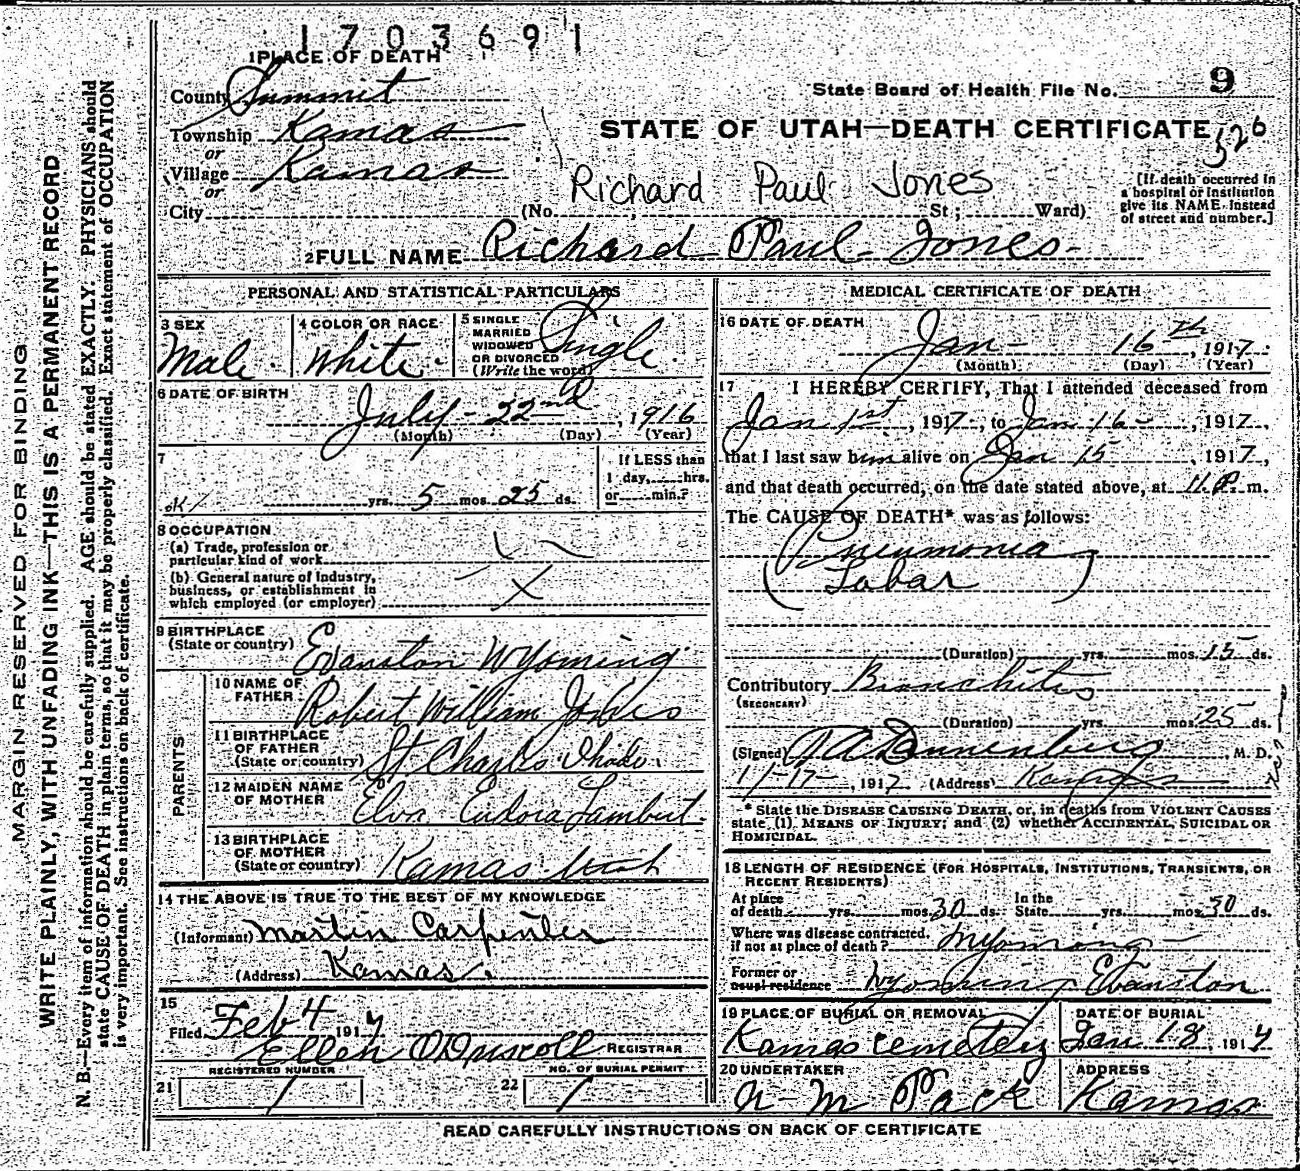 1703691
1 PLACE OF DEATH
County Summit
State Board of Health File No. 9
Township Kamas
STATE OF UTAH—DEATH CERTIFICATE
526
or
Village Kamas
or
Richard Paul Jones
City (No. St ; Ward)
[If death occurred in
a hospital or institution
give its NAME instead
of street and number.]
2 FULL NAME Richard Paul Jones
PERSONAL AND STATISTICAL PARTICULARS
3 SEX
Male
4 COLOR OR RACE
White
5 SINGLE
MARRIED
WIDOWED
OR DIVORCED
(Write the word)
Single
6 DATE OF BIRTH
July 22nd, 1916
(Month) (Day) (Year)
7
If LESS than
1 day, hrs.
or min.?
yrs. 5 mos. 25 ds.
8 OCCUPATION
(a) Trade, profession or
particular kind of work
(b) General nature of industry,
business, or establishment in
which employed (or employer)
X
9 BIRTHPLACE
(State or country) Evanston Wyoming
PARENTS
10 NAME OF
FATHER Robert William Jones
11 BIRTHPLACE
OF FATHER
(State or country) St Charles Idaho
12 MAIDEN NAME
OF MOTHER Elva Eudora Lambert
13 BIRTHPLACE
OF MOTHER
(State or country) Kamas Utah
14 THE ABOVE IS TRUE TO THE BEST OF MY KNOWLEDGE
(Informant) Martin Carpenter
(Address) Kamas
15
Filed Feb 4 1917
Ellen O'Driscoll REGISTRAR
REGISTERED NUMBER
21 1
NO. OF BURIAL PERMIT
22 1
MEDICAL CERTIFICATE OF DEATH
16 DATE OF DEATH
Jan 16th, 1917
(Month) (Day) (Year)
17 I HEREBY CERTIFY, That I attended deceased from
Jan 1st, 1917, to Jan 16, 1917,
that I last saw him alive on Jan 15, 1917,
and that death occurred, on the date stated above, at 11 P. m.
The CAUSE OF DEATH* was as follows:
Pneumonia
(Lobar)
(Duration) yrs. mos. 15 ds.
Contributory Bronchitis
(SECONDARY)
(Duration) yrs. mos. 25 ds.
(Signed) Dannenberg, M. D.
1-17-, 1917 (Address) Kamas
* State the DISEASE CAUSING DEATH, or, in deaths from VIOLENT CAUSES
state (1) MEANS OF INJURY; and (2) whether ACCIDENTAL, SUICIDAL OR
HOMICIDAL.
18 LENGTH OF RESIDENCE (FOR HOSPITALS, INSTITUTIONS, TRANSIENTS, OR
RECENT RESIDENTS)
At place
of death yrs. mos. 30 ds.
In the
State yrs. mos. 30 ds.
Where was disease contracted,
if not at place of death? Wyoming
Former or
usual residence Wyoming Evanston
19 PLACE OF BURIAL OR REMOVAL
Kamas Cemetery
DATE OF BURIAL
Jan 18, 1917
20 UNDERTAKER
M Pack
ADDRESS
Kamas
READ CAREFULLY INSTRUCTIONS ON BACK OF CERTIFICATE
MARGIN RESERVED FOR BINDING
WRITE PLAINLY, WITH UNFADING INK—THIS IS A PERMANENT RECORD
N. B.—Every item of information should be carefully supplied. AGE should be stated EXACTLY. PHYSICIANS should
state CAUSE OF DEATH in plain terms, so that it may be properly classified. Exact statement of OCCUPATION
is very important. See instructions on back of certificate.